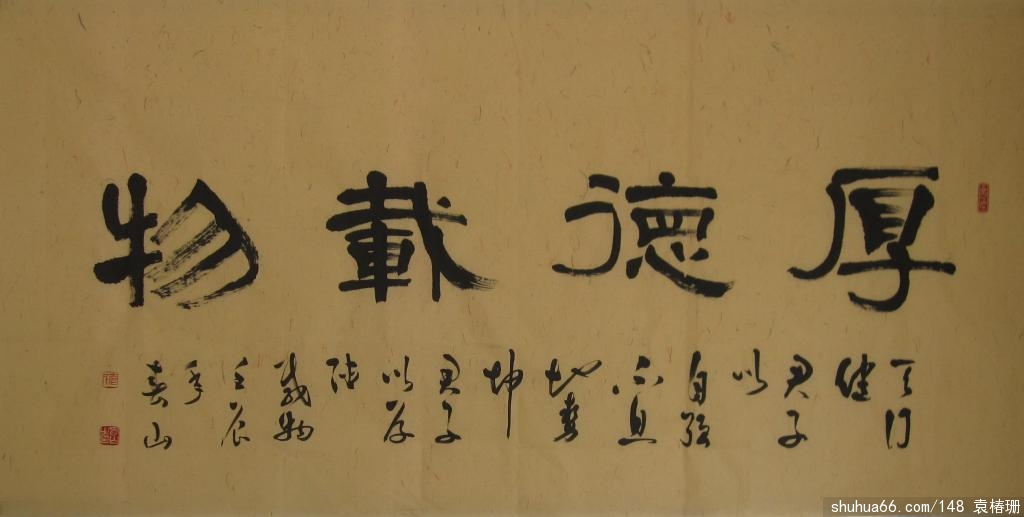 厚德載物
天行
健
君子
以
自强
不息
地势
坤
君子
以厚
德
載物
壬辰
年
春山
shuhua66.com/148 袁椿珊